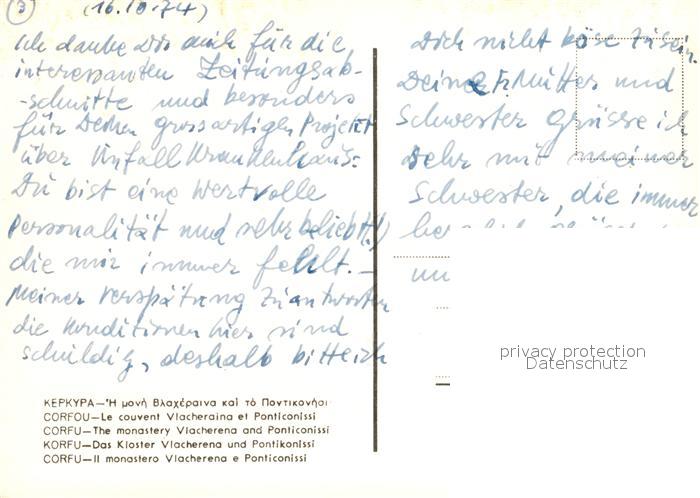 3 (16.10.74)
Ich danke Dir auch für die
interessanten Zeitungsab-
-schnitte und besonders
für Deinen grossartigen Projekt
über Unfall Krankenhaus:
Du bist eine wertvolle
Personalität und sehr beliebt(!)
die mir immer fehlt. —
Meiner Verspätung zu antworten
die Konditionen hier sind
schuldig, deshalb bitte ich
Dich nicht böse zu sein.
Deine Mutter und
Schwester Grüsse ich
sehr mit meiner
Schwester, die immer
ΚΕΡΚΥΡΑ—Ἡ μονὴ Βλαχέραινα καὶ τὸ Ποντικονήσι
CORFOU—Le couvent Vlacheraina et Ponticonissi
CORFU—The monastery Vlacherena and Ponticonissi
KORFU—Das Kloster Vlacherena und Pontikonissi
CORFU—Il monastero Vlacherena e Ponticonissi
privacy protection
Datenschutz